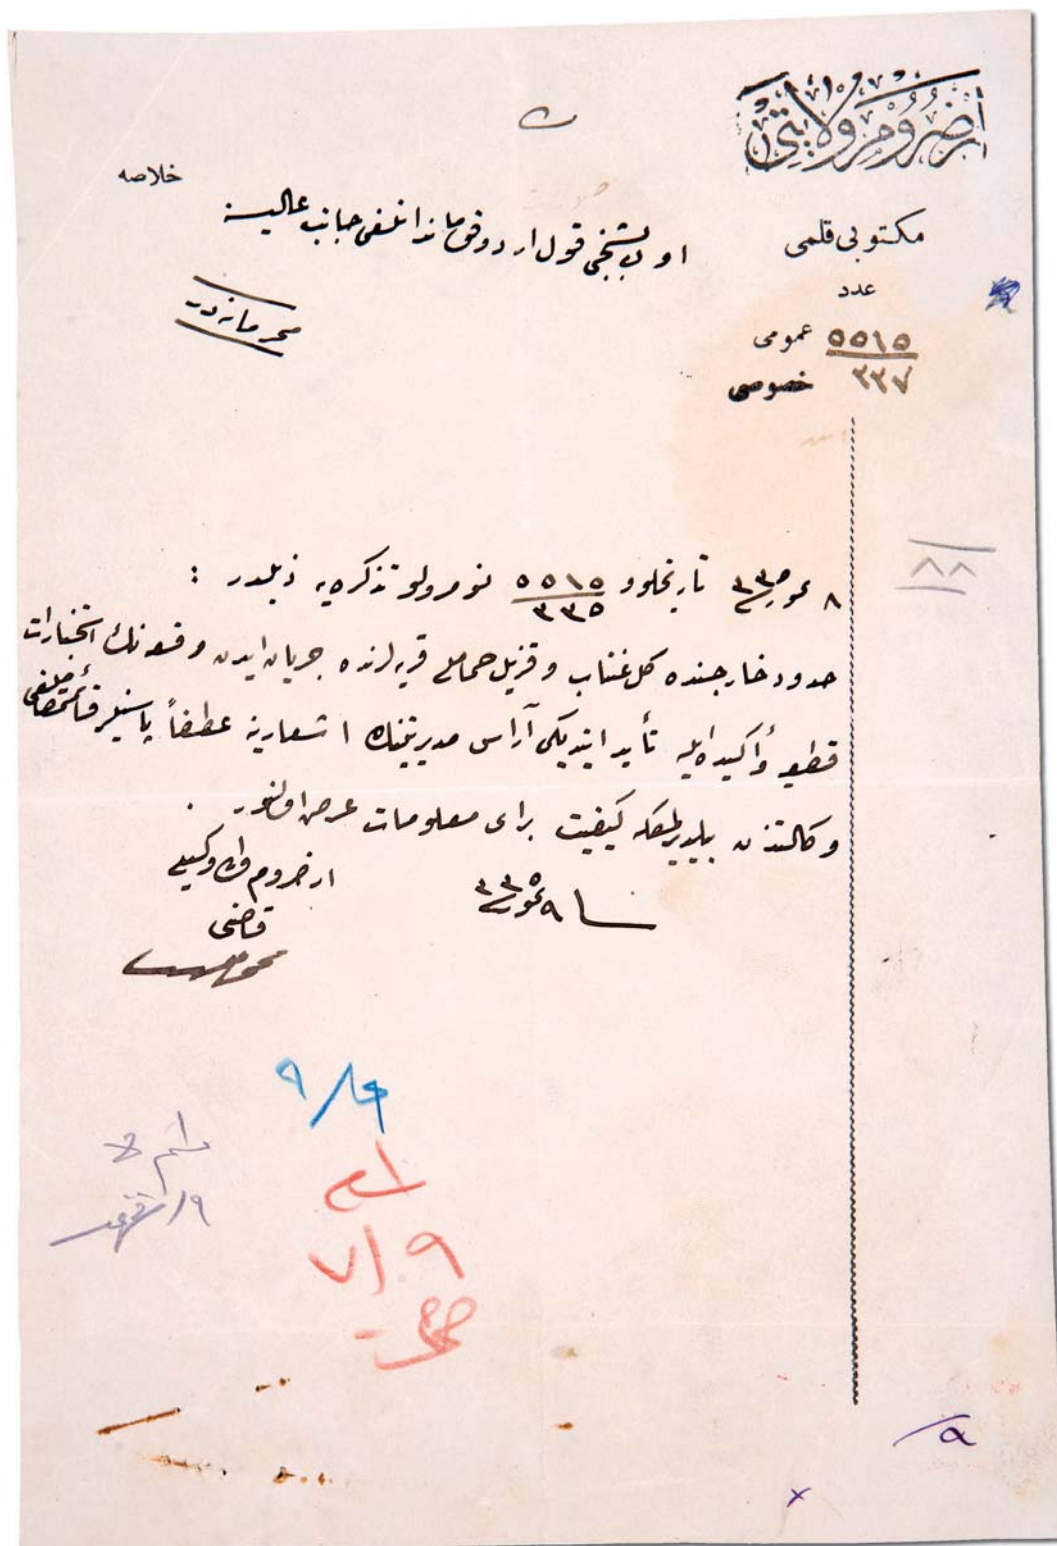 ارضروم ولايتى
مكتوبى قلمى
عدد
٥٥١٥ عمومى
٣٣٧ خصوصى
خلاصه
اون بشنجى قول اردو قوماندانلغى جانب عاليسنه
محرمانه در
٨٨
٨ تموز ٣٣٥ تاريخلو و ٥٥١٥/٣٣٥ نومرولو تذكره يه ذيلدر :
حدود خارجنده كل عنتاب و قزيل حماملى قريه لرنده جريان ايدن وقوعاتك استخبارات
قطعيه و اكيده ايله تأيد ايتديكى آراس مديريتنك اشعارينه عطفاً پاسينلر قائممقاملغى
وكالتندن بيلديرلمكله كيفيت براى معلومات عرض اولنور .
فى ٩ تموز ٣٣٥
ارضروم والى وكيلى
قاضى
٩
٩/٧
٩